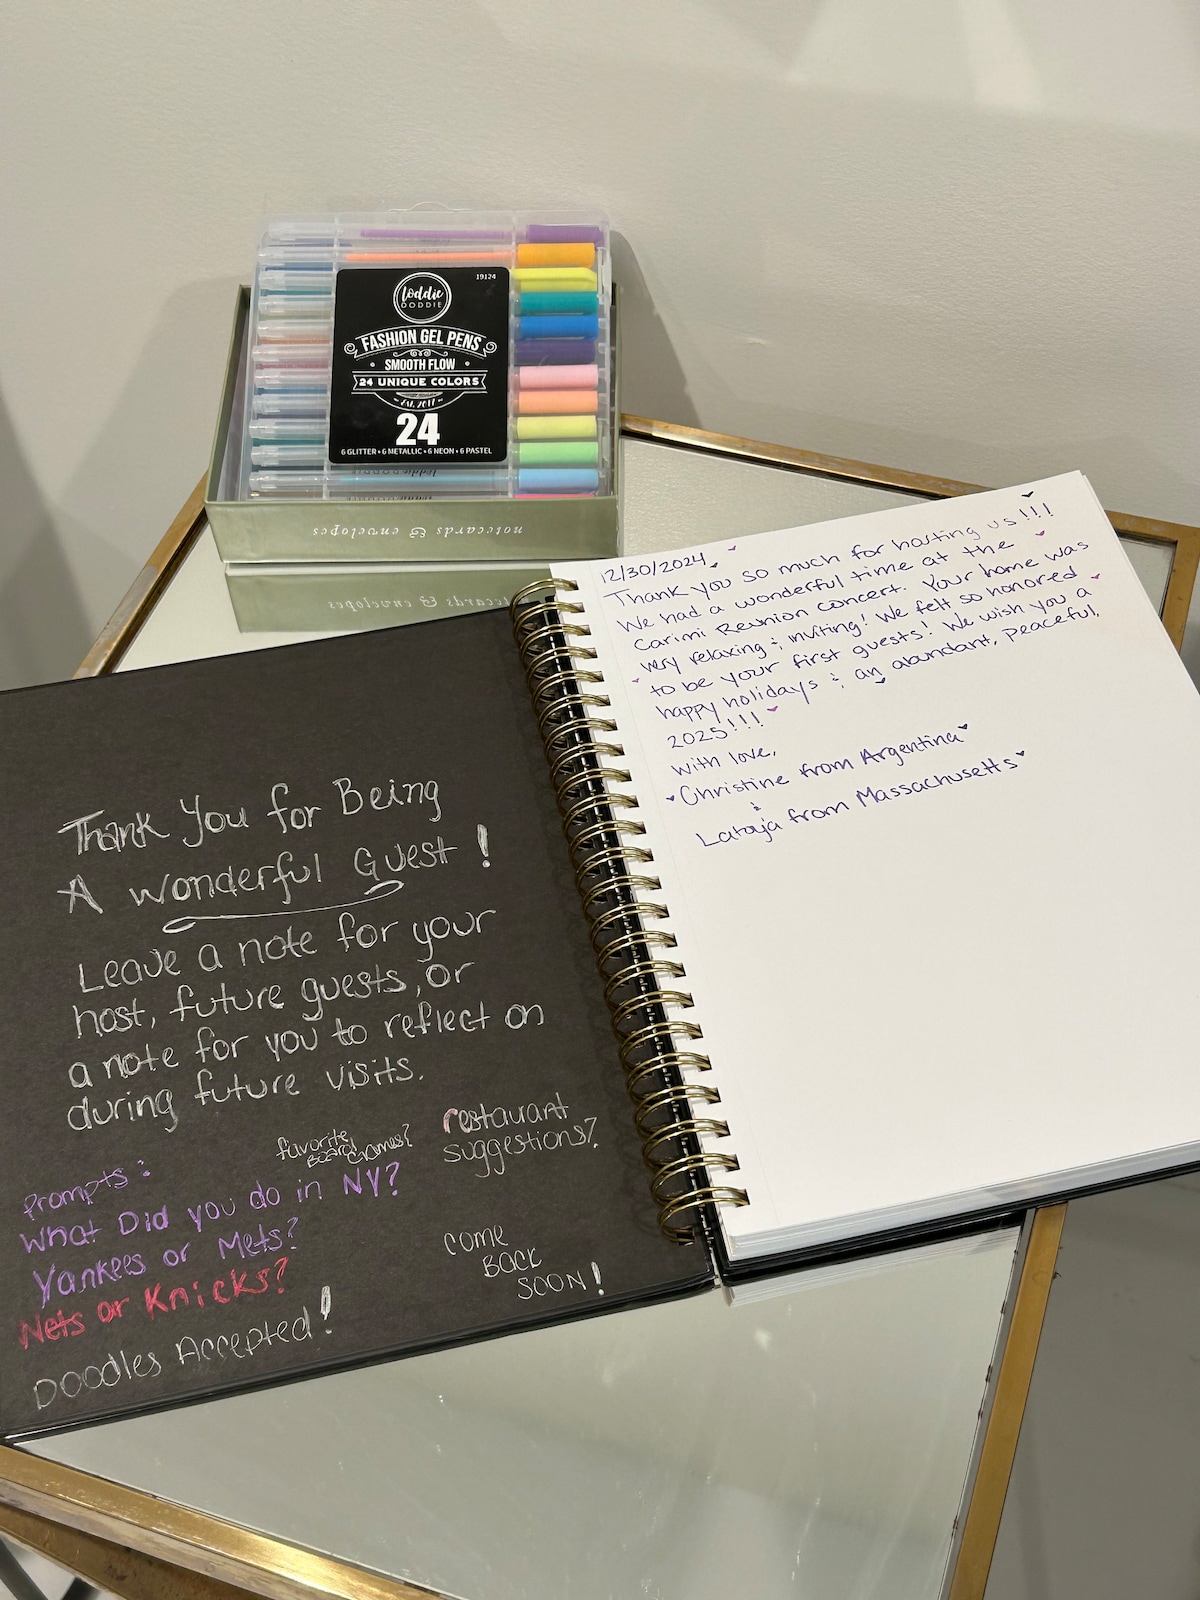 19124
töddie
DODDIE
FASHION GEL PENS
SMOOTH FLOW
24 UNIQUE COLORS
EST. 2017
24
6 GLITTER • 6 METALLIC • 6 NEON • 6 PASTEL
notecards & envelopes
notecards & envelopes
12/30/2024
Thank you so much for hosting us!!!
We had a wonderful time at the
Carimi Reunion concert. Your home was
very relaxing & inviting! We felt so honored
to be your first guests! We wish you a
happy holidays & an abundant, peaceful,
2025!!!
With love,
Christine from Argentina
&
Latoya from Massachusetts
Thank You for Being
A wonderful Guest!
Leave a note for your
host, future guests, or
a note for you to reflect on
during future visits.
favorite
Board Games?
restaurant
suggestions?
Prompts:
What Did you do in NY?
Yankees or Mets?
Nets or Knicks?
Doodles Accepted!
COME
BACK
SOON!